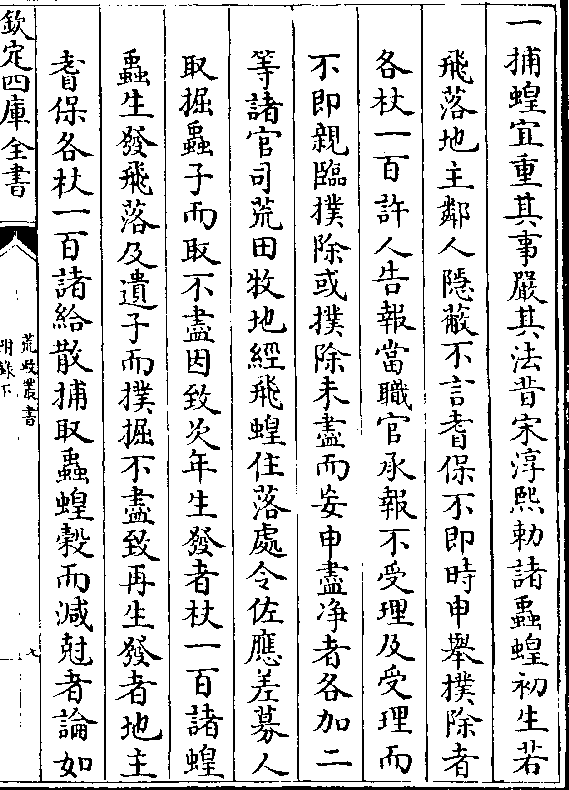 一捕蝗宜重其事嚴其法昔宋淳熙勅諸蟲蝗初生若
飛落地主鄰人隱蔽不言耆保不即時申舉撲除者
各杖一百許人告報當職官承報不受理及受理而
不即親臨撲除或撲除未盡而妄申盡净者各加二
等諸官司荒田牧地經飛蝗住落處令佐應差募人
取掘蟲子而取不盡因致次年生發者杖一百諸蝗
蟲生發飛落及遺子而撲掘不盡致再生發者地主
耆保各杖一百諸給散捕取蟲蝗榖而減尅者論如
欽定四庫全書
荒政叢書
附錄下